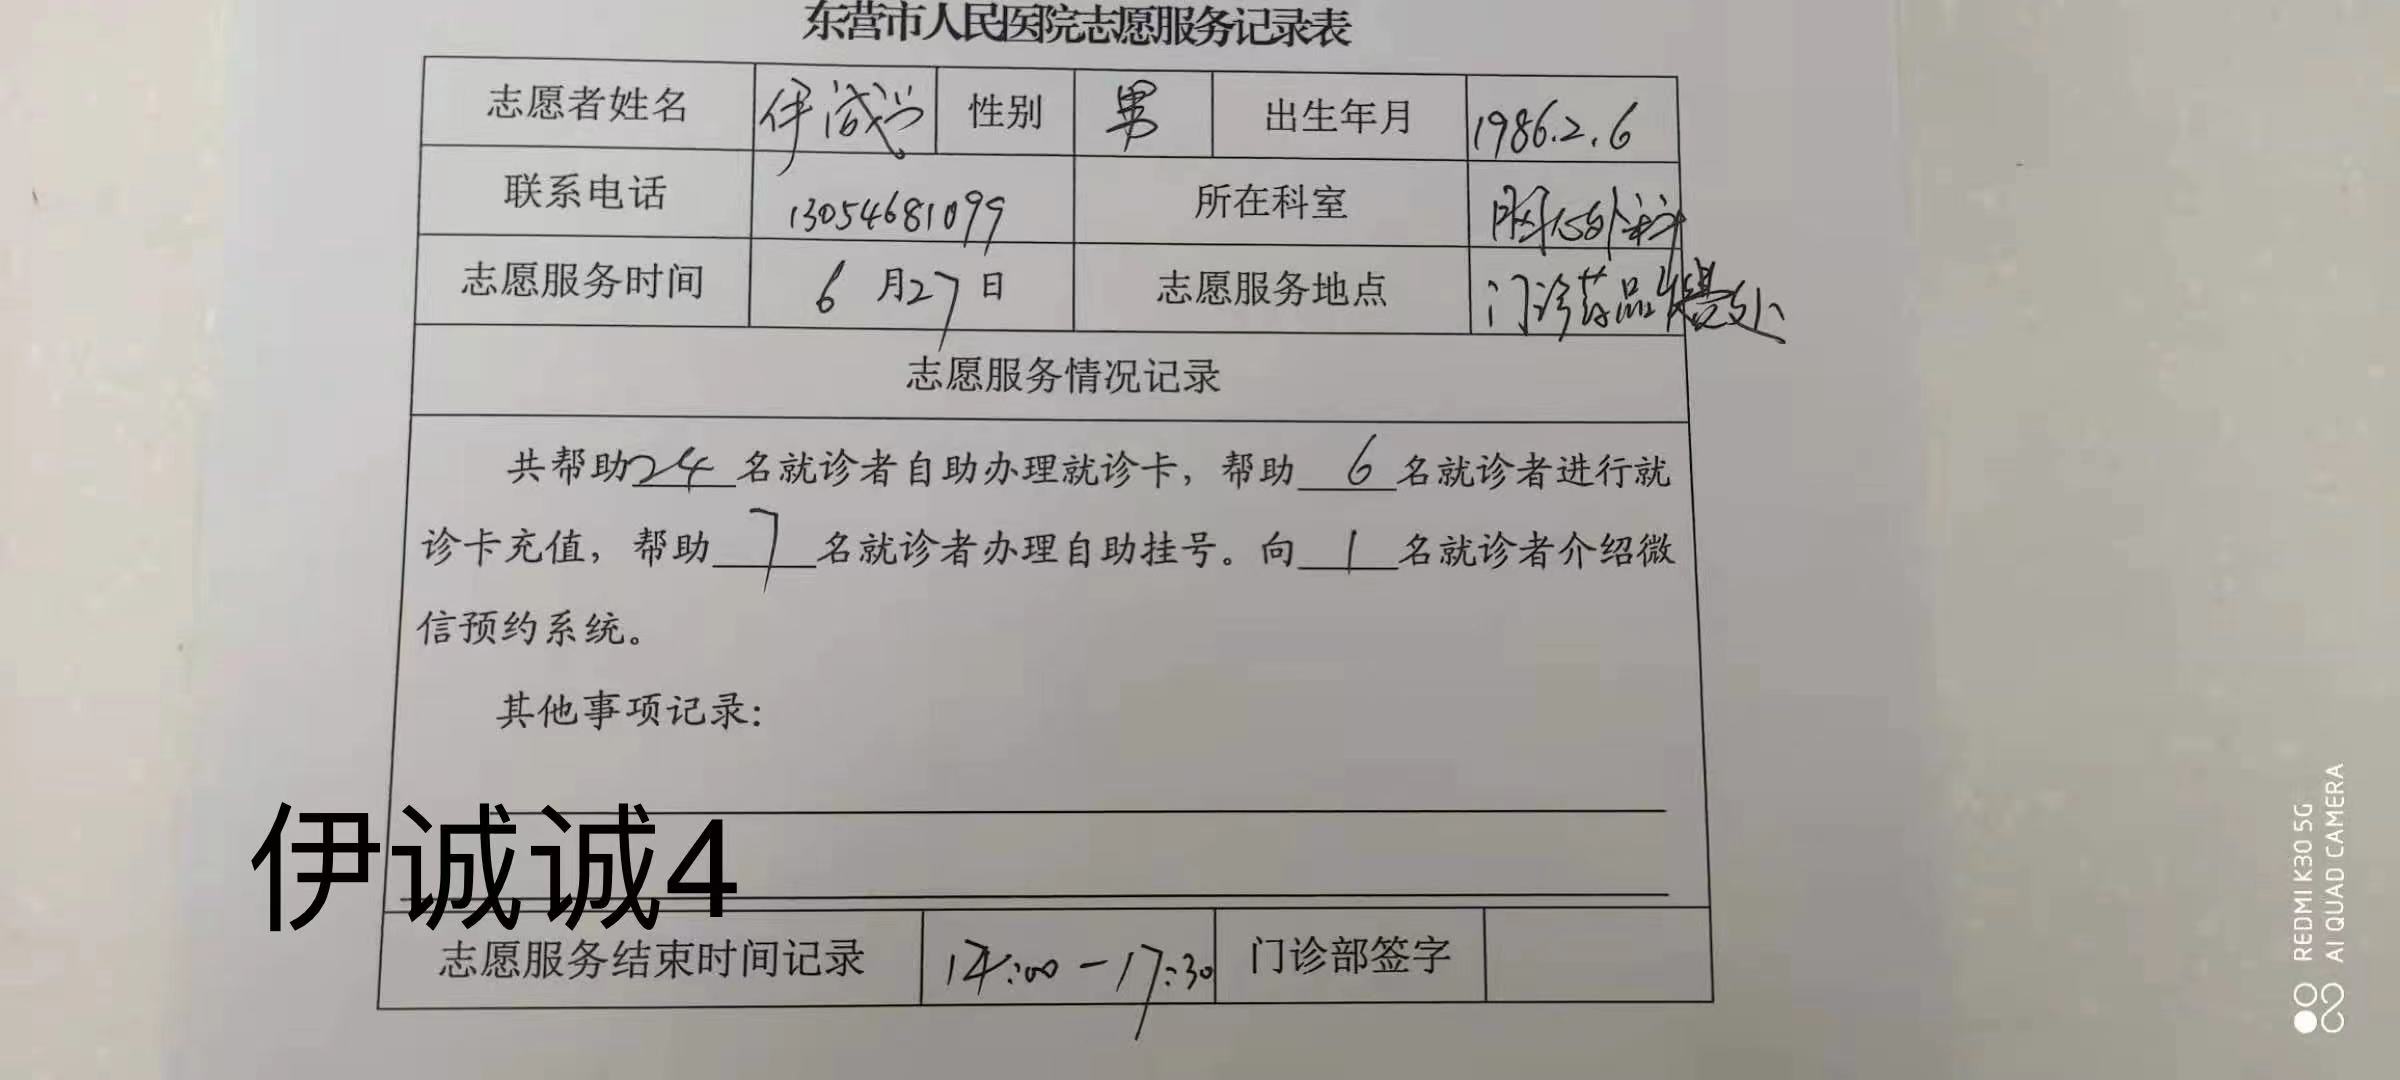 东营市人民医院志愿服务记录表
志愿者姓名 伊诚 性别 男 出生年月 1986.2.6
联系电话 13054681099 所在科室 胸心外科
志愿服务时间 6月27日 志愿服务地点 门诊药品处
志愿服务情况记录
共帮助24名就诊者自助办理就诊卡，帮助6名就诊者进行就
诊卡充值，帮助7名就诊者办理自助挂号。向1名就诊者介绍微
信预约系统。
其他事项记录：
伊诚诚4
志愿服务结束时间记录 14:00-17:30 门诊部签字
REDMI K30 5G
AI QUAD CAMERA